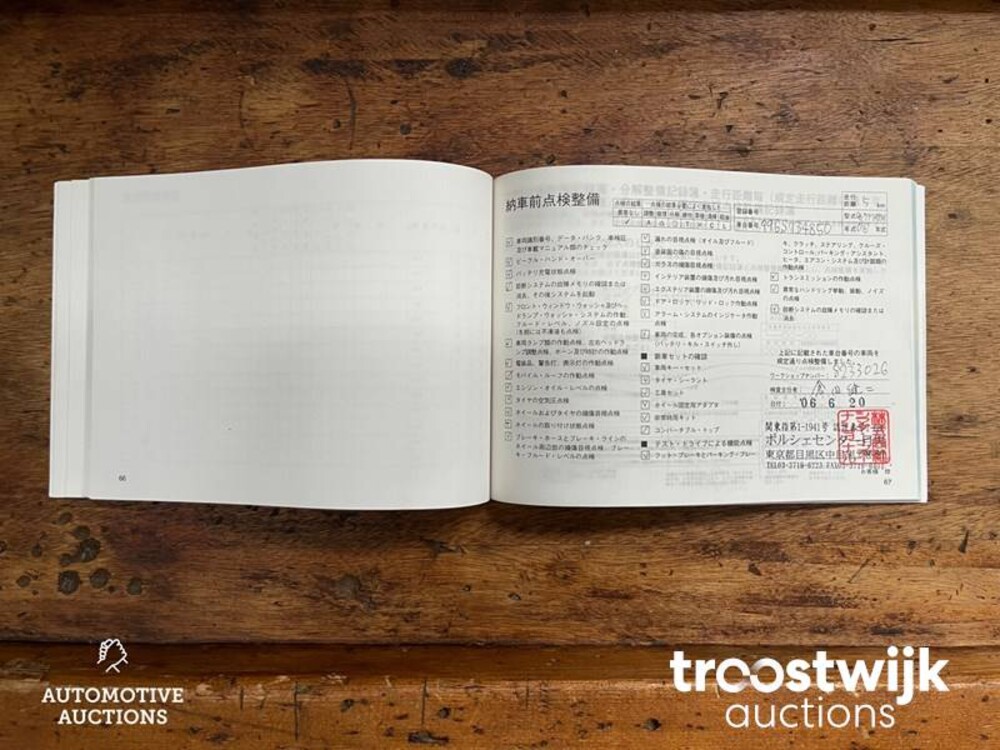 納車前点検整備
車両識別番号、データ・バンク、車検証
及び車載マニュアル類のチェック
ビークル・ハンド・オーバー
バッテリ充電状態点検
診断システムの故障メモリの確認または
消去、その後システムを起動
フロント・ウィンドウ・ウォッシャ及びヘッ
ドランプ・ウォッシャ・システムの作動、
フルード・レベル、ノズル設定の点検
(冬期には不凍液も点検)
車両ランプ類の作動点検、左右ヘッドラ
ンプ調整点検、ホーン及び時計の作動点検
電装品、警告灯、表示灯の作動点検
モバイル・ルーフの作動点検
エンジン・オイル・レベルの点検
タイヤの空気圧点検
ホイールおよびタイヤの損傷目視点検
ホイールの取り付け状態点検
ブレーキ・ホースとブレーキ・ラインの
キ・フルード・レベルの点検
66
漏れの目視点検 (オイル及びフルード)
塗装面の傷の目視点検
ガラスの損傷目視点検
インテリア装置の損傷及び汚れ目視点検
エクステリア装置の損傷及び汚れ目視点検
ドア・ロック/リッド・ロック作動点検
アラーム・システムのインジケータ作動
点検
車両の完成、各オプション装備の点検
(バッテリ・キル・スイッチ外し)
■ 新車セットの確認
車両キー・セット
タイヤ・シーラント
工具セット
ホイール固定用アダプタ
非常時用キット
コンバーチブル・トップ
■ テスト・ドライブによる機能点検
フット・ブレーキとパーキング・ブレー
車台番号
キ、クラッチ、ステアリング、クルーズ・
コントロール、パーキング・アシスタント、
ヒータ、エアコン・システム及び計器類の
作動点検
トランスミッションの作動点検
異常なハンドリング挙動、振動、ノイズ
の点検
診断システムの故障メモリの確認または
消去
上記に記載された車台番号の車両を
規定通り点検整備しました。
ワークショップナンバー
検査主任者
日付: '06 6 20
関東指第1-1941号
ポルシェセンター目黒
東京都目黒区中目黒
TEL03-3719-6723
67
AUTOMOTIVE
AUCTIONS
troostwijk
auctions